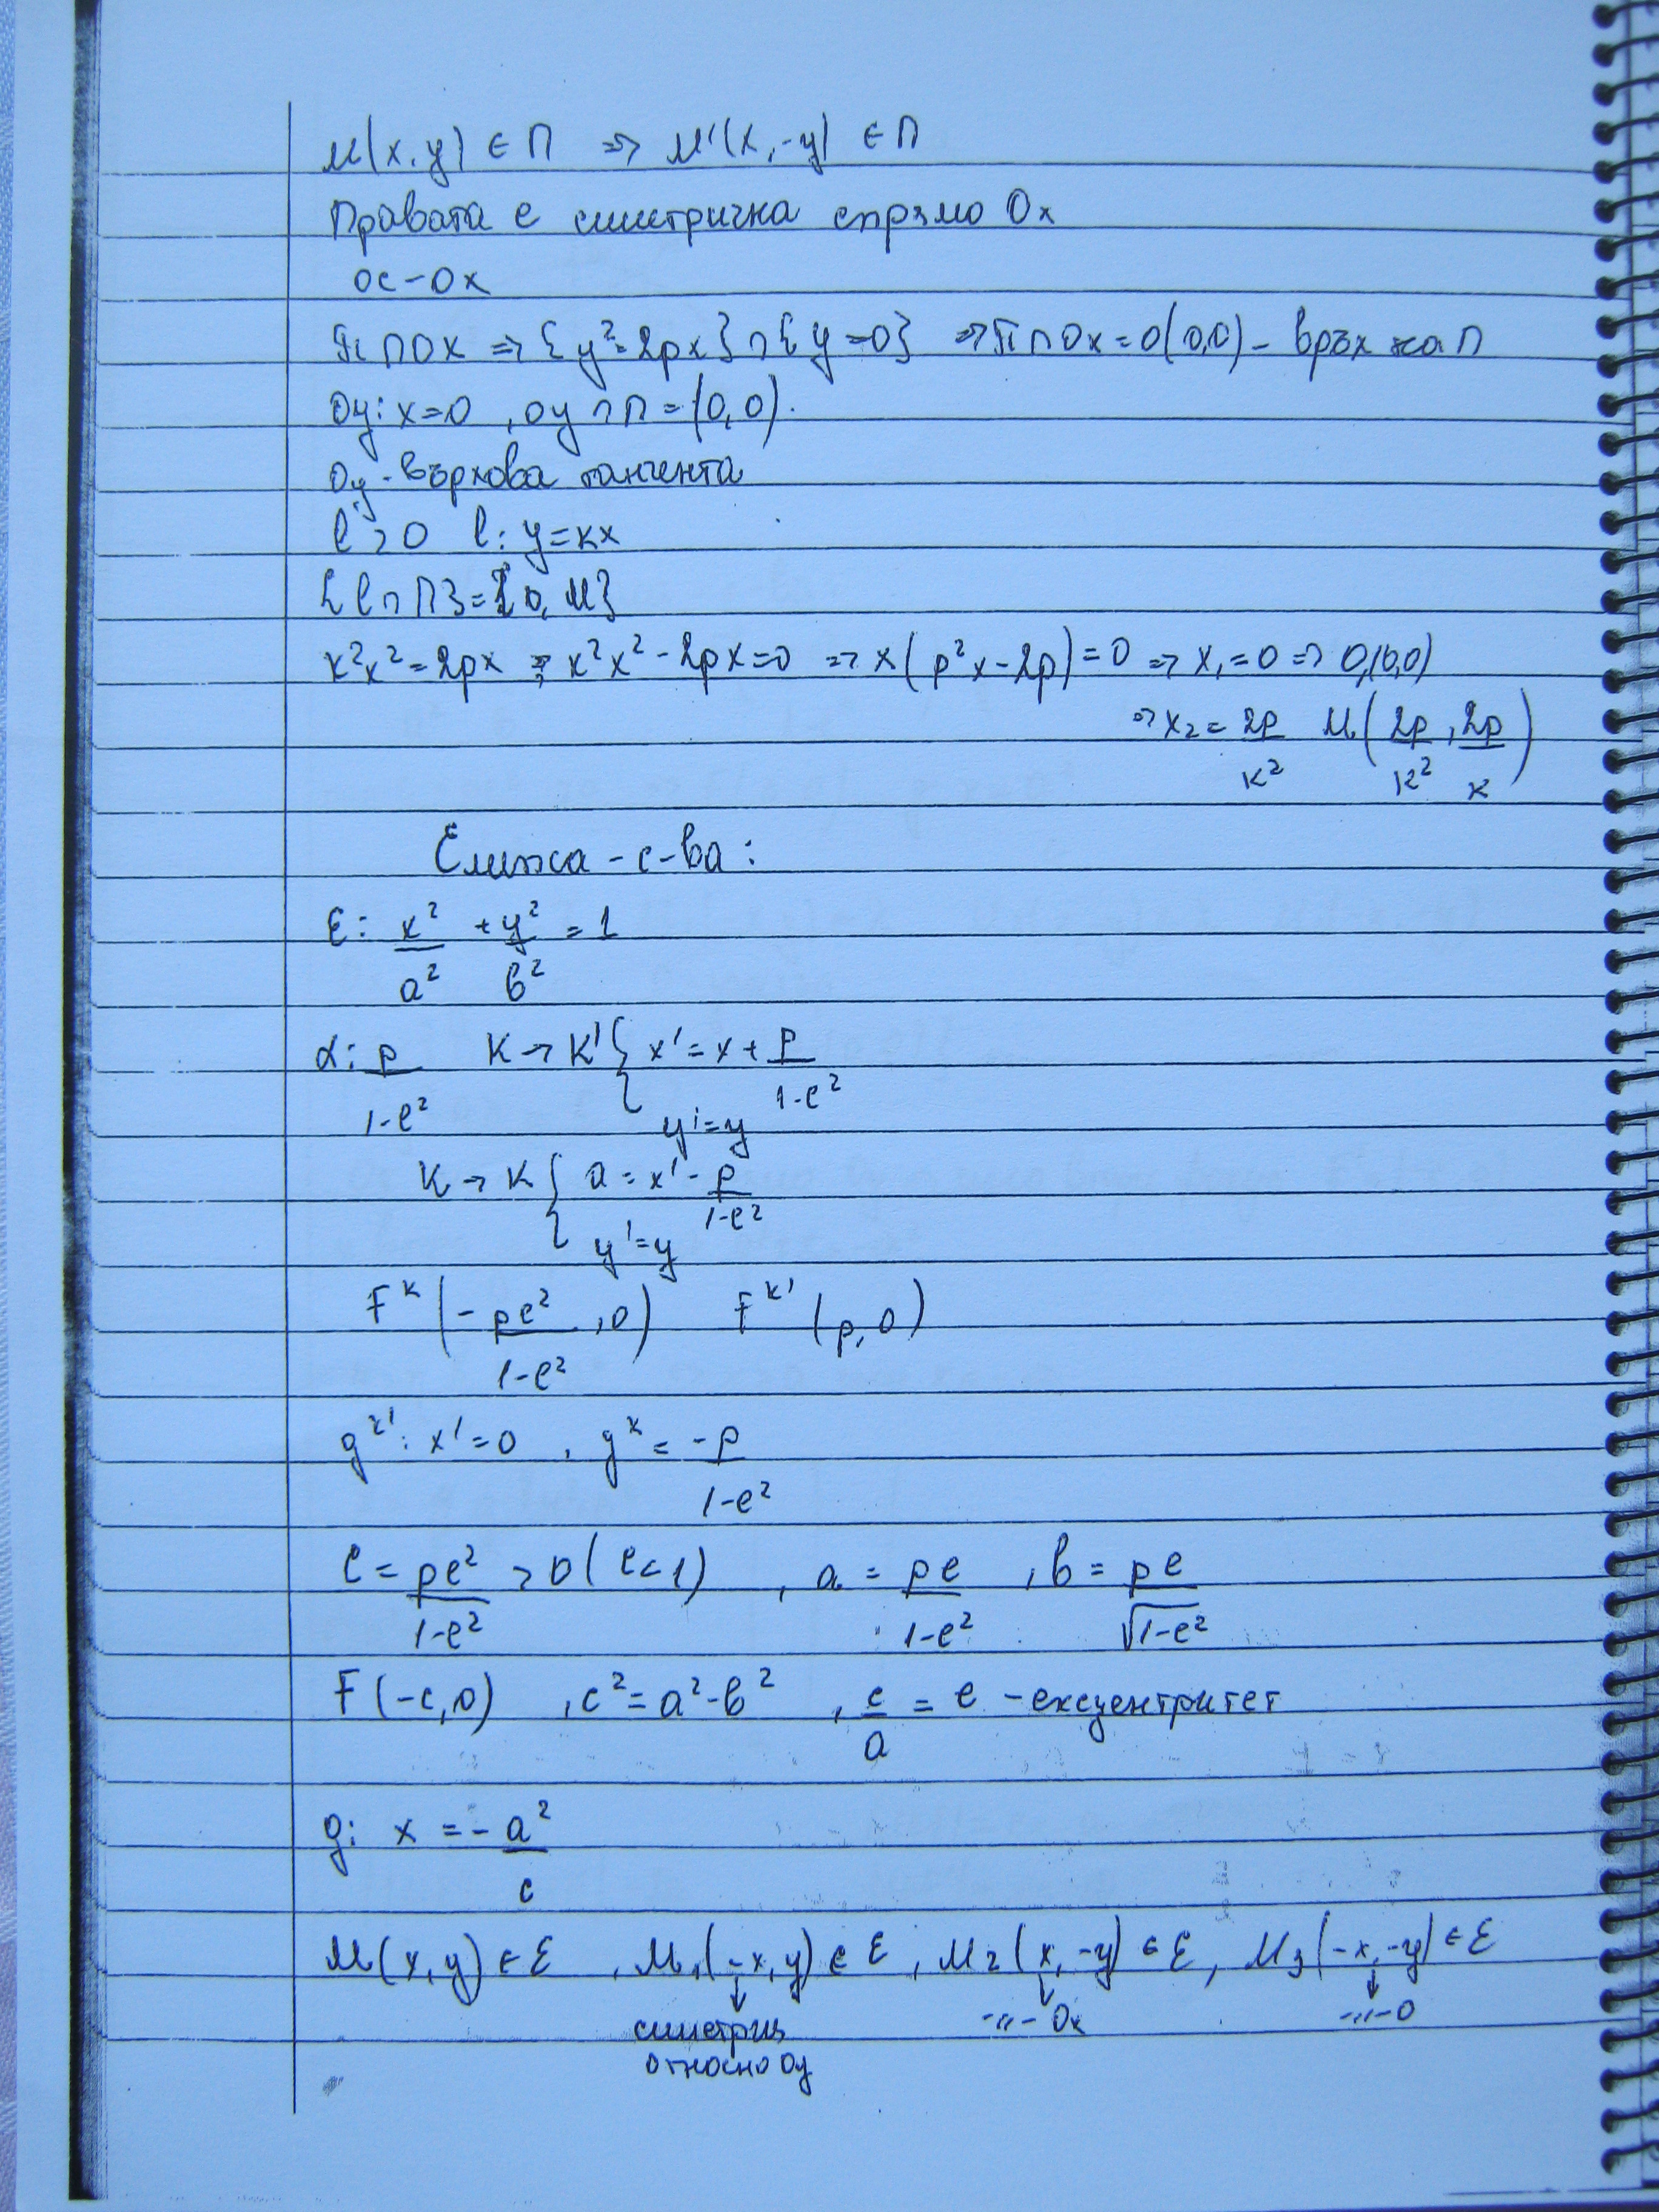 M(x,y) ∈ П ⇒ M'(x,-y) ∈ П
Правата е симетрична спрямо Ox
ос-Ox
П ∩ OX ⇒ {y²=2px} ∩ {y=0} ⇒ П ∩ Ox = O(0,0) - връх на П
Oy: x=0 , Oy ∩ П = (0,0).
Oy - върхова тангента
l > 0 l: y=kx
{l ∩ П} = {O, M}
k²x²=2px ⇒ k²x²-2px=0 ⇒ x(p²x-2p)=0 ⇒ x₁=0 ⇒ O,(0,0)
⇒ x₂ = 2p/k² M(2p/k², 2p/k)
Елипса - с-ва:
ε: x²/a² + y²/b² = 1
α: p/1-e² K → K' { x' = x + p/1-e²
y' = y
K → K { a = x' - p/1-e²
y' = y
F^K (-pe²/1-e², 0) F^K' (p, 0)
g^K': x'=0 , g^K = -p/1-e²
c = pe²/1-e² > 0 (e<1) , a = pe/1-e² , b = pe/√1-e²
F(-c,0) , c²=a²-b² , c/a = e - ексцентритет
g: x = -a²/c
M(x,y) ∈ ε , M₁(-x,y) ∈ ε , M₂(x,-y) ∈ ε , M₃(-x,-y) ∈ ε
↓ ↓ ↓
симетрия -"- Ox -"- O
относно Oy